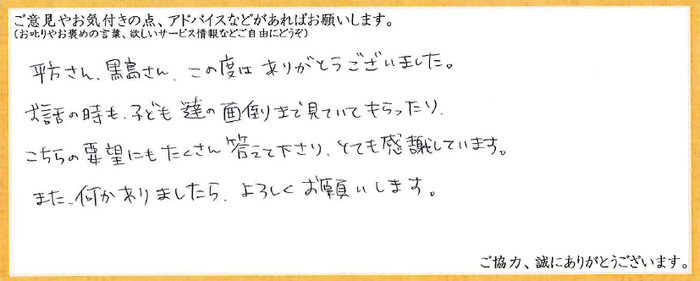 ご意見やお気付きの点、アドバイスなどがあればお願いします。
(お叱りやお褒めの言葉、欲しいサービス情報などご自由にどうぞ)
平方さん、黒島さん、この度はありがとうございました。
お話の時も、子ども達の面倒まで見ていてもらったり、
こちらの要望にもたくさん答えて下さり、とても感謝しています。
また、何かありましたら、よろしくお願いします。
ご協力、誠にありがとうございます。